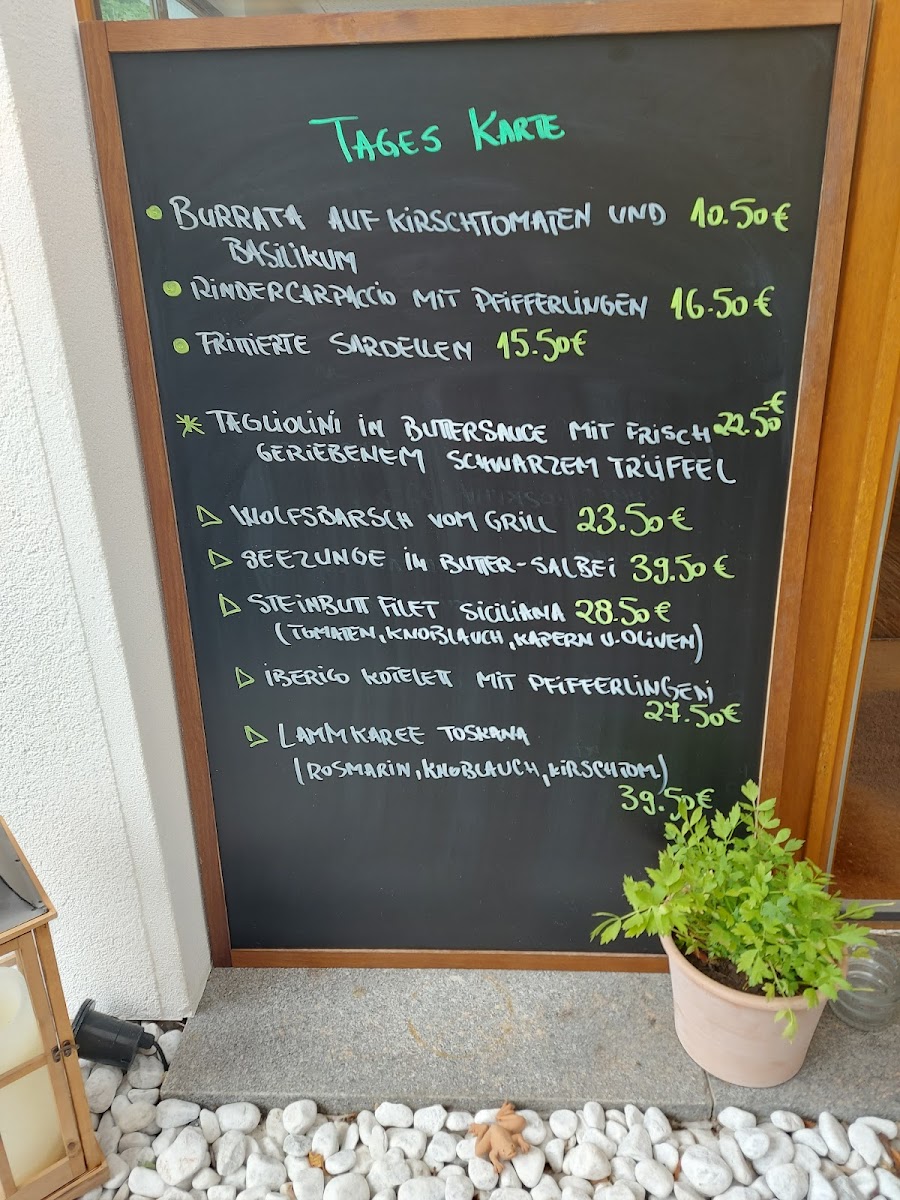 TAGES KARTE
BURRATA AUF KIRSCHTOMATEN UND 10.50€
BASILIKUM
RINDERCARPACCIO MIT PFIFFERLINGEN 16.50€
FRITIERTE SARDELLEN 15.50€
TAGLIOLINI IN BUTTERSAUCE MIT FRISCH 22.50€
GERIEBENEM SCHWARZEM TRÜFFEL
WOLFSBARSCH VOM GRILL 23.50€
SEEZUNGE IN BUTTER-SALBEI 39.50€
STEINBUTT FILET SICILIANA 28.50€
(TOMATEN, KNOBLAUCH, KAPERN U. OLIVEN)
IBERICO KOTELETT MIT PFIFFERLINGEN
27.50€
LAMMKAREE TOSKANA
(ROSMARIN, KNOBLAUCH, KIRSCHTOM)
39.50€